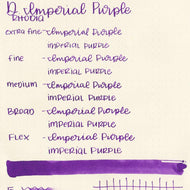 D. Imperial Purple
Rhodia
extra fine - Imperial Purple
imperial purple
fine - Imperial Purple
imperial purple
medium - Imperial Purple
imperial purple
BROAD - Imperial Purple
imperial purple
FLEX - Imperial Purple
imperial purple